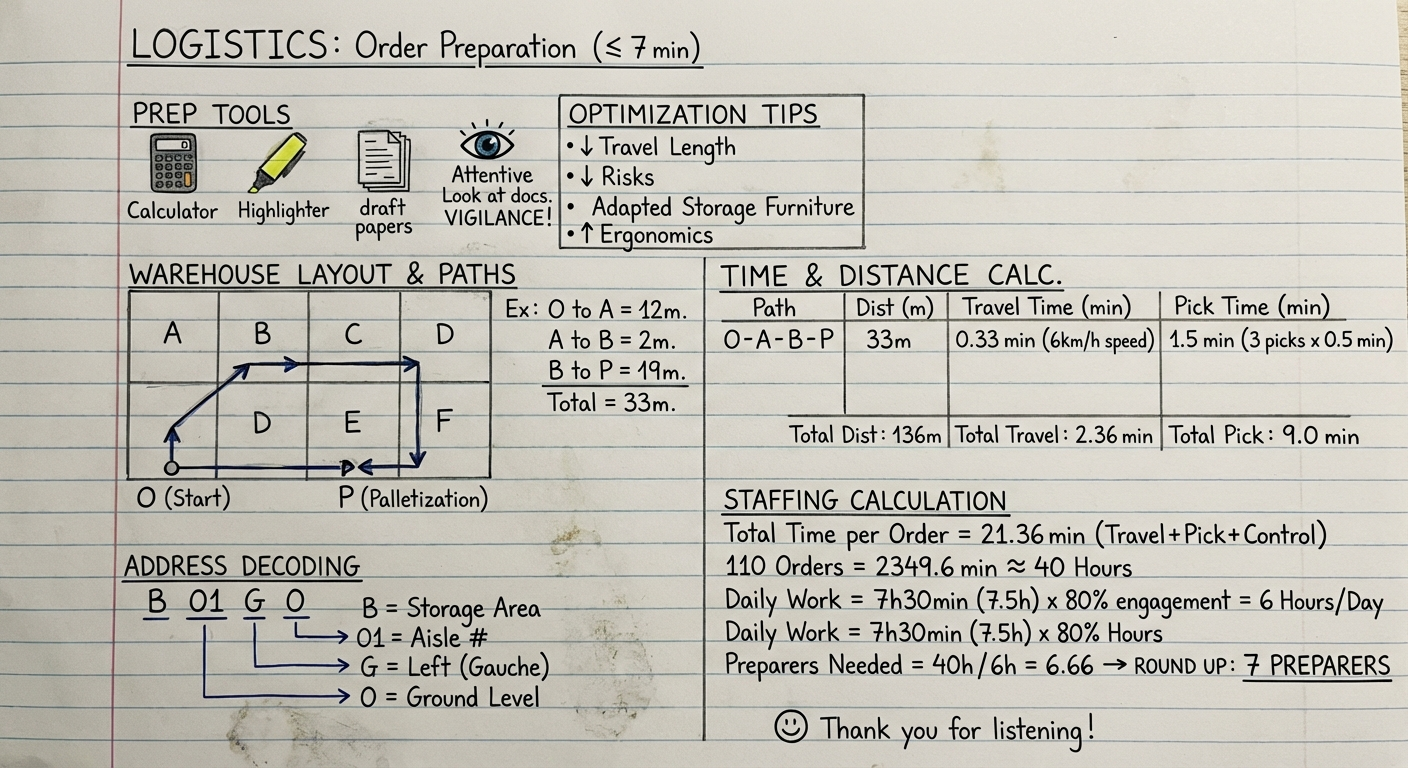 LOGISTICS: Order Preparation (≤ 7 min)
PREP TOOLS
Calculator
Highlighter
draft
papers
Attentive
Look at docs.
VIGILANCE!
OPTIMIZATION TIPS
• ↓ Travel Length
• ↓ Risks
• Adapted Storage Furniture
• ↑ Ergonomics
WAREHOUSE LAYOUT & PATHS
A B C D
D E F
P
O (Start) P (Palletization)
Ex: O to A = 12m.
A to B = 2m.
B to P = 19m.
Total = 33m.
ADDRESS DECODING
B 01 G 0
B = Storage Area
01 = Aisle #
G = Left (Gauche)
0 = Ground Level
TIME & DISTANCE CALC.
Path Dist (m) Travel Time (min) Pick Time (min)
O-A-B-P 33m 0.33 min (6km/h speed) 1.5 min (3 picks x 0.5 min)
Total Dist: 136m Total Travel: 2.36 min Total Pick: 9.0 min
STAFFING CALCULATION
Total Time per Order = 21.36 min (Travel+Pick+Control)
110 Orders = 2349.6 min ≈ 40 Hours
Daily Work = 7h30min (7.5h) x 80% engagement = 6 Hours/Day
Daily Work = 7h30min (7.5h) x 80% Hours
Preparers Needed = 40h/6h = 6.66 → ROUND UP: 7 PREPARERS
Thank you for listening!